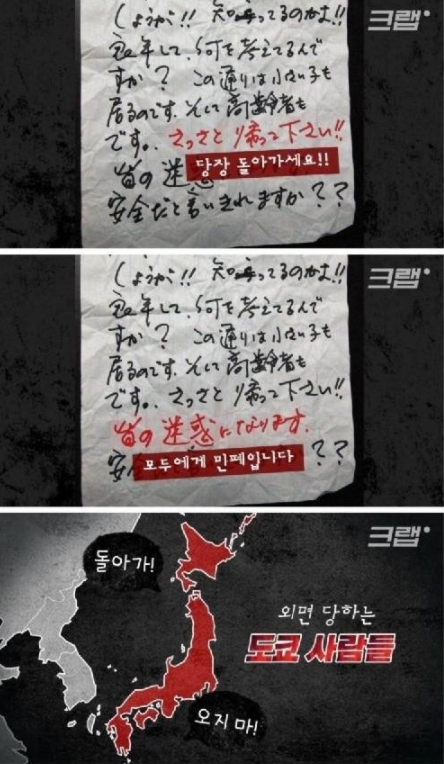 크랩
しょうか!! 知ってるのかよ!!
良い年して、何を考えてるんで
すか? この通りは小さい子も
居るのです。そして高齢者も
です。さっさと帰って下さい!!
당장 돌아가세요!!
皆の迷惑
安全だと言いきれますか??
크랩
しょうか!! 知ってるのかよ!!
良い年して、何を考えてるんで
すか? この通りは小さい子も
居るのです。そして高齢者も
です。さっさと帰って下さい!!
皆の迷惑になります。
安 ??
모두에게 민폐입니다
크랩
돌아가!
외면 당하는
도쿄 사람들
오지 마!